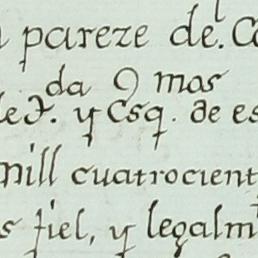 pareze de. Co
da 9 mos
de J. y Csq. de es
mill cuatrocient
s fiel, y legalm